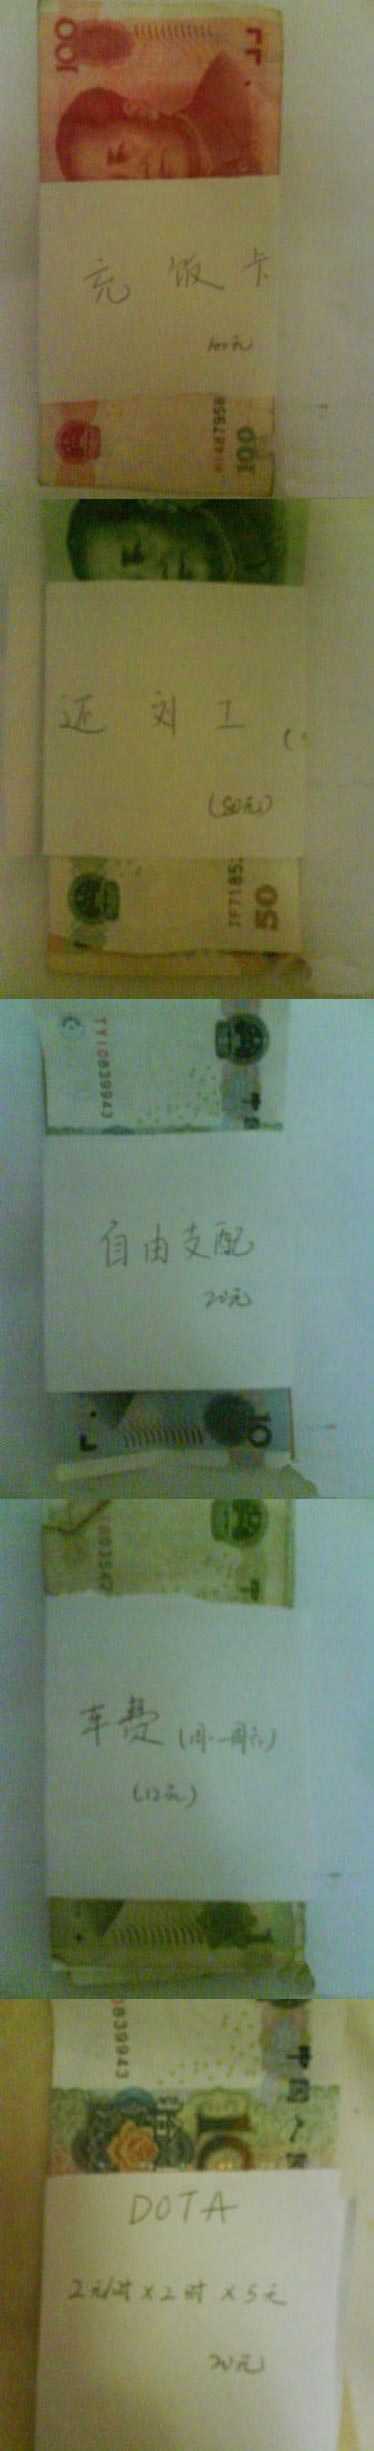 100
充饭卡
100元
100
还刘工
(50元)
50
TY10839943
自由支配
20元
10
车费(周一-周六)
(12元)
1
0839943
中国人民
10
DOTA
2元/时×2时×5元
20元